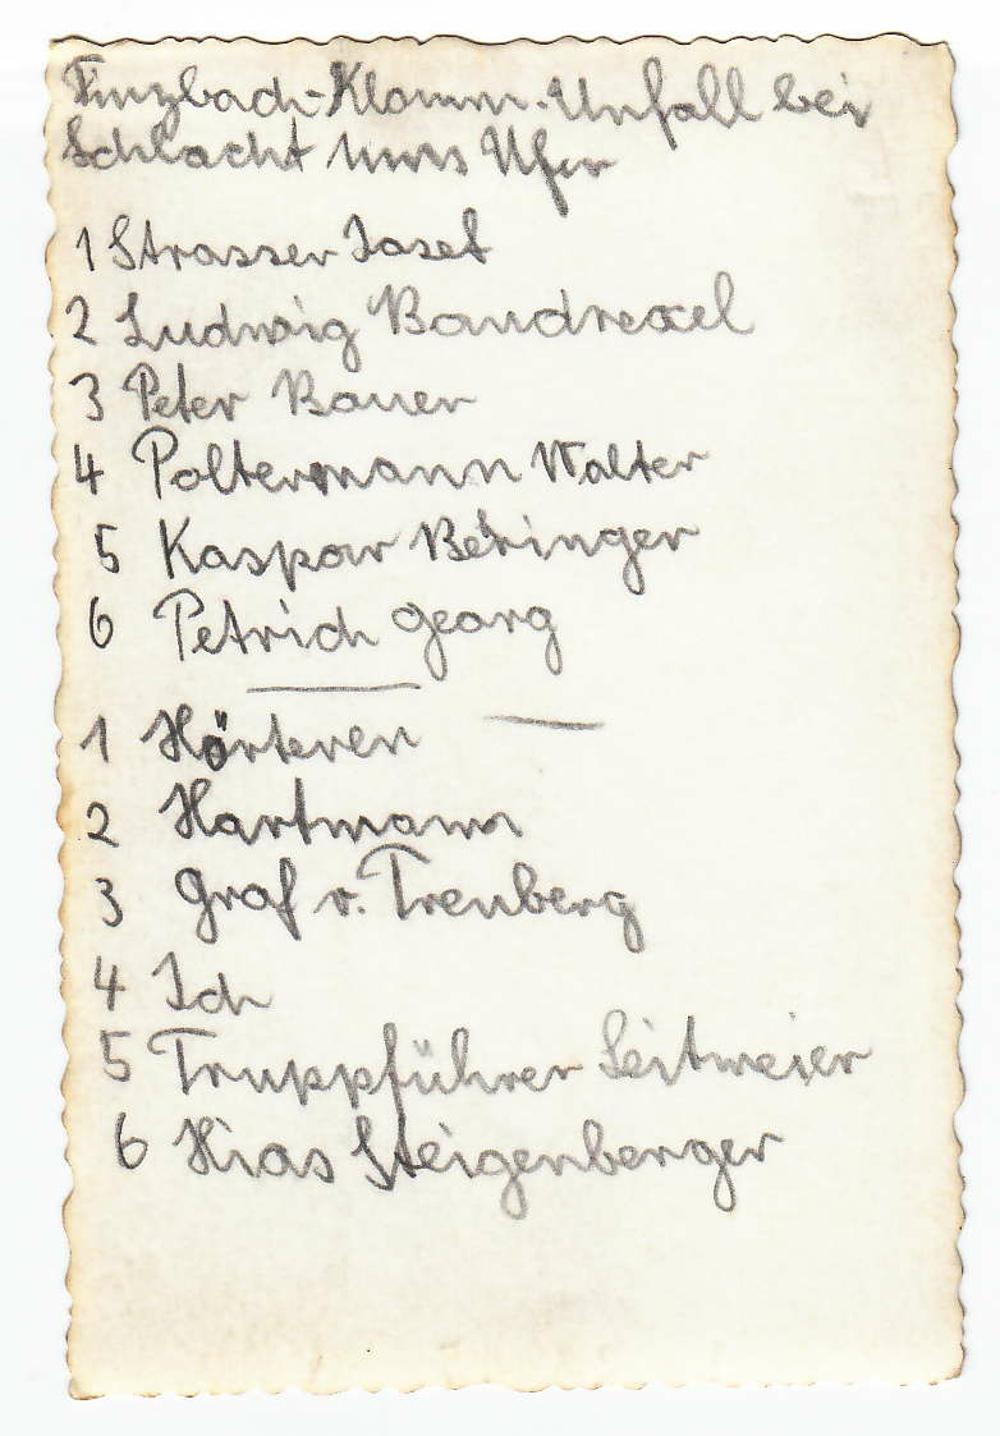 Finzbach-Klamm-Unfall bei
Schlacht ums Ufer
1 Strasser Josef
2 Ludwig Baudrexel
3 Peter Bauer
4 Poltermann Walter
5 Kaspar Beringer
6 Petrich Georg
1 Hörteren
2 Hartmann
3 Graf v. Trenberg
4 Ich
5 Truppführer Leitmeier
6 Hias Steigenberger